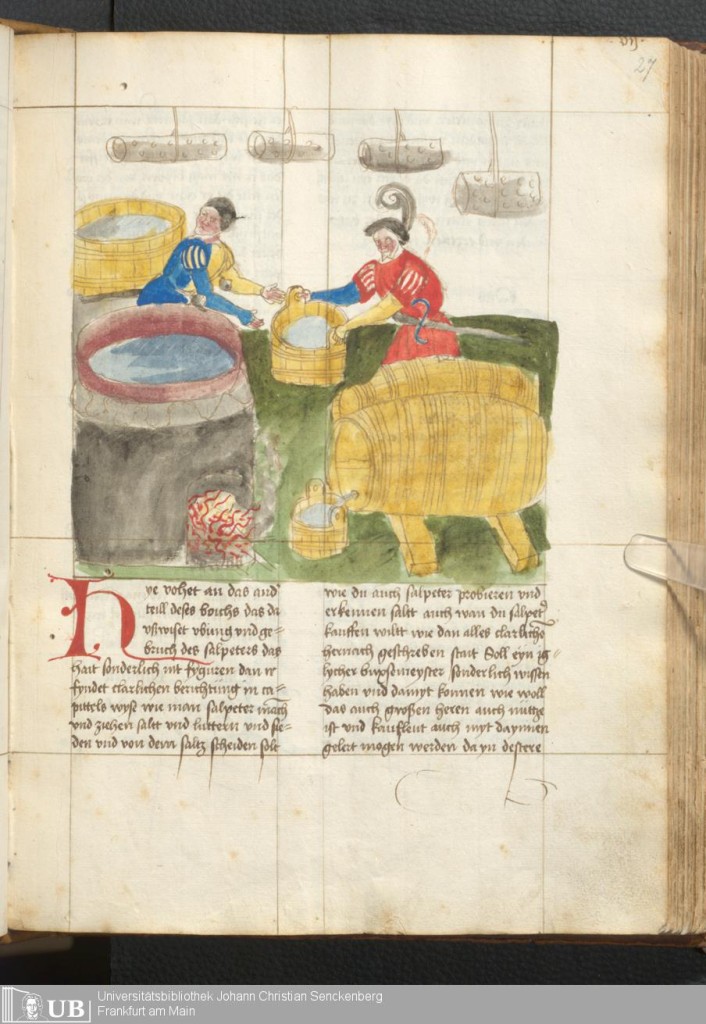 27
Hye vohet an das and
teill deses buchs das da
vßwiset vbung vnd ge=
bruch des salpeters das
hait sonderlich nit fyguren dan ir
fyndet clarlichen berichtung in ca=
pittels wyse wie man salpeter mach
vnd ziehen saltt vnd luttern vnd sie=
den vnd von dem saltz scheiden solt
wie du auch salpeter probieren vnd
erkennen saltt auch wan du salpet
kauffen wiltt wie dan alles clarliche
hernach geschreben stait Soll eyn ig=
lycher buxsemeyster sonderlich wissen
haben vnd damyt konnen wie woll
das auch großen heren auch nutze
ist vnd kaufleut auch myt daynnen
gelert mogen werden da yn destere
UB
Universitätsbibliothek Johann Christian Senckenberg
Frankfurt am Main